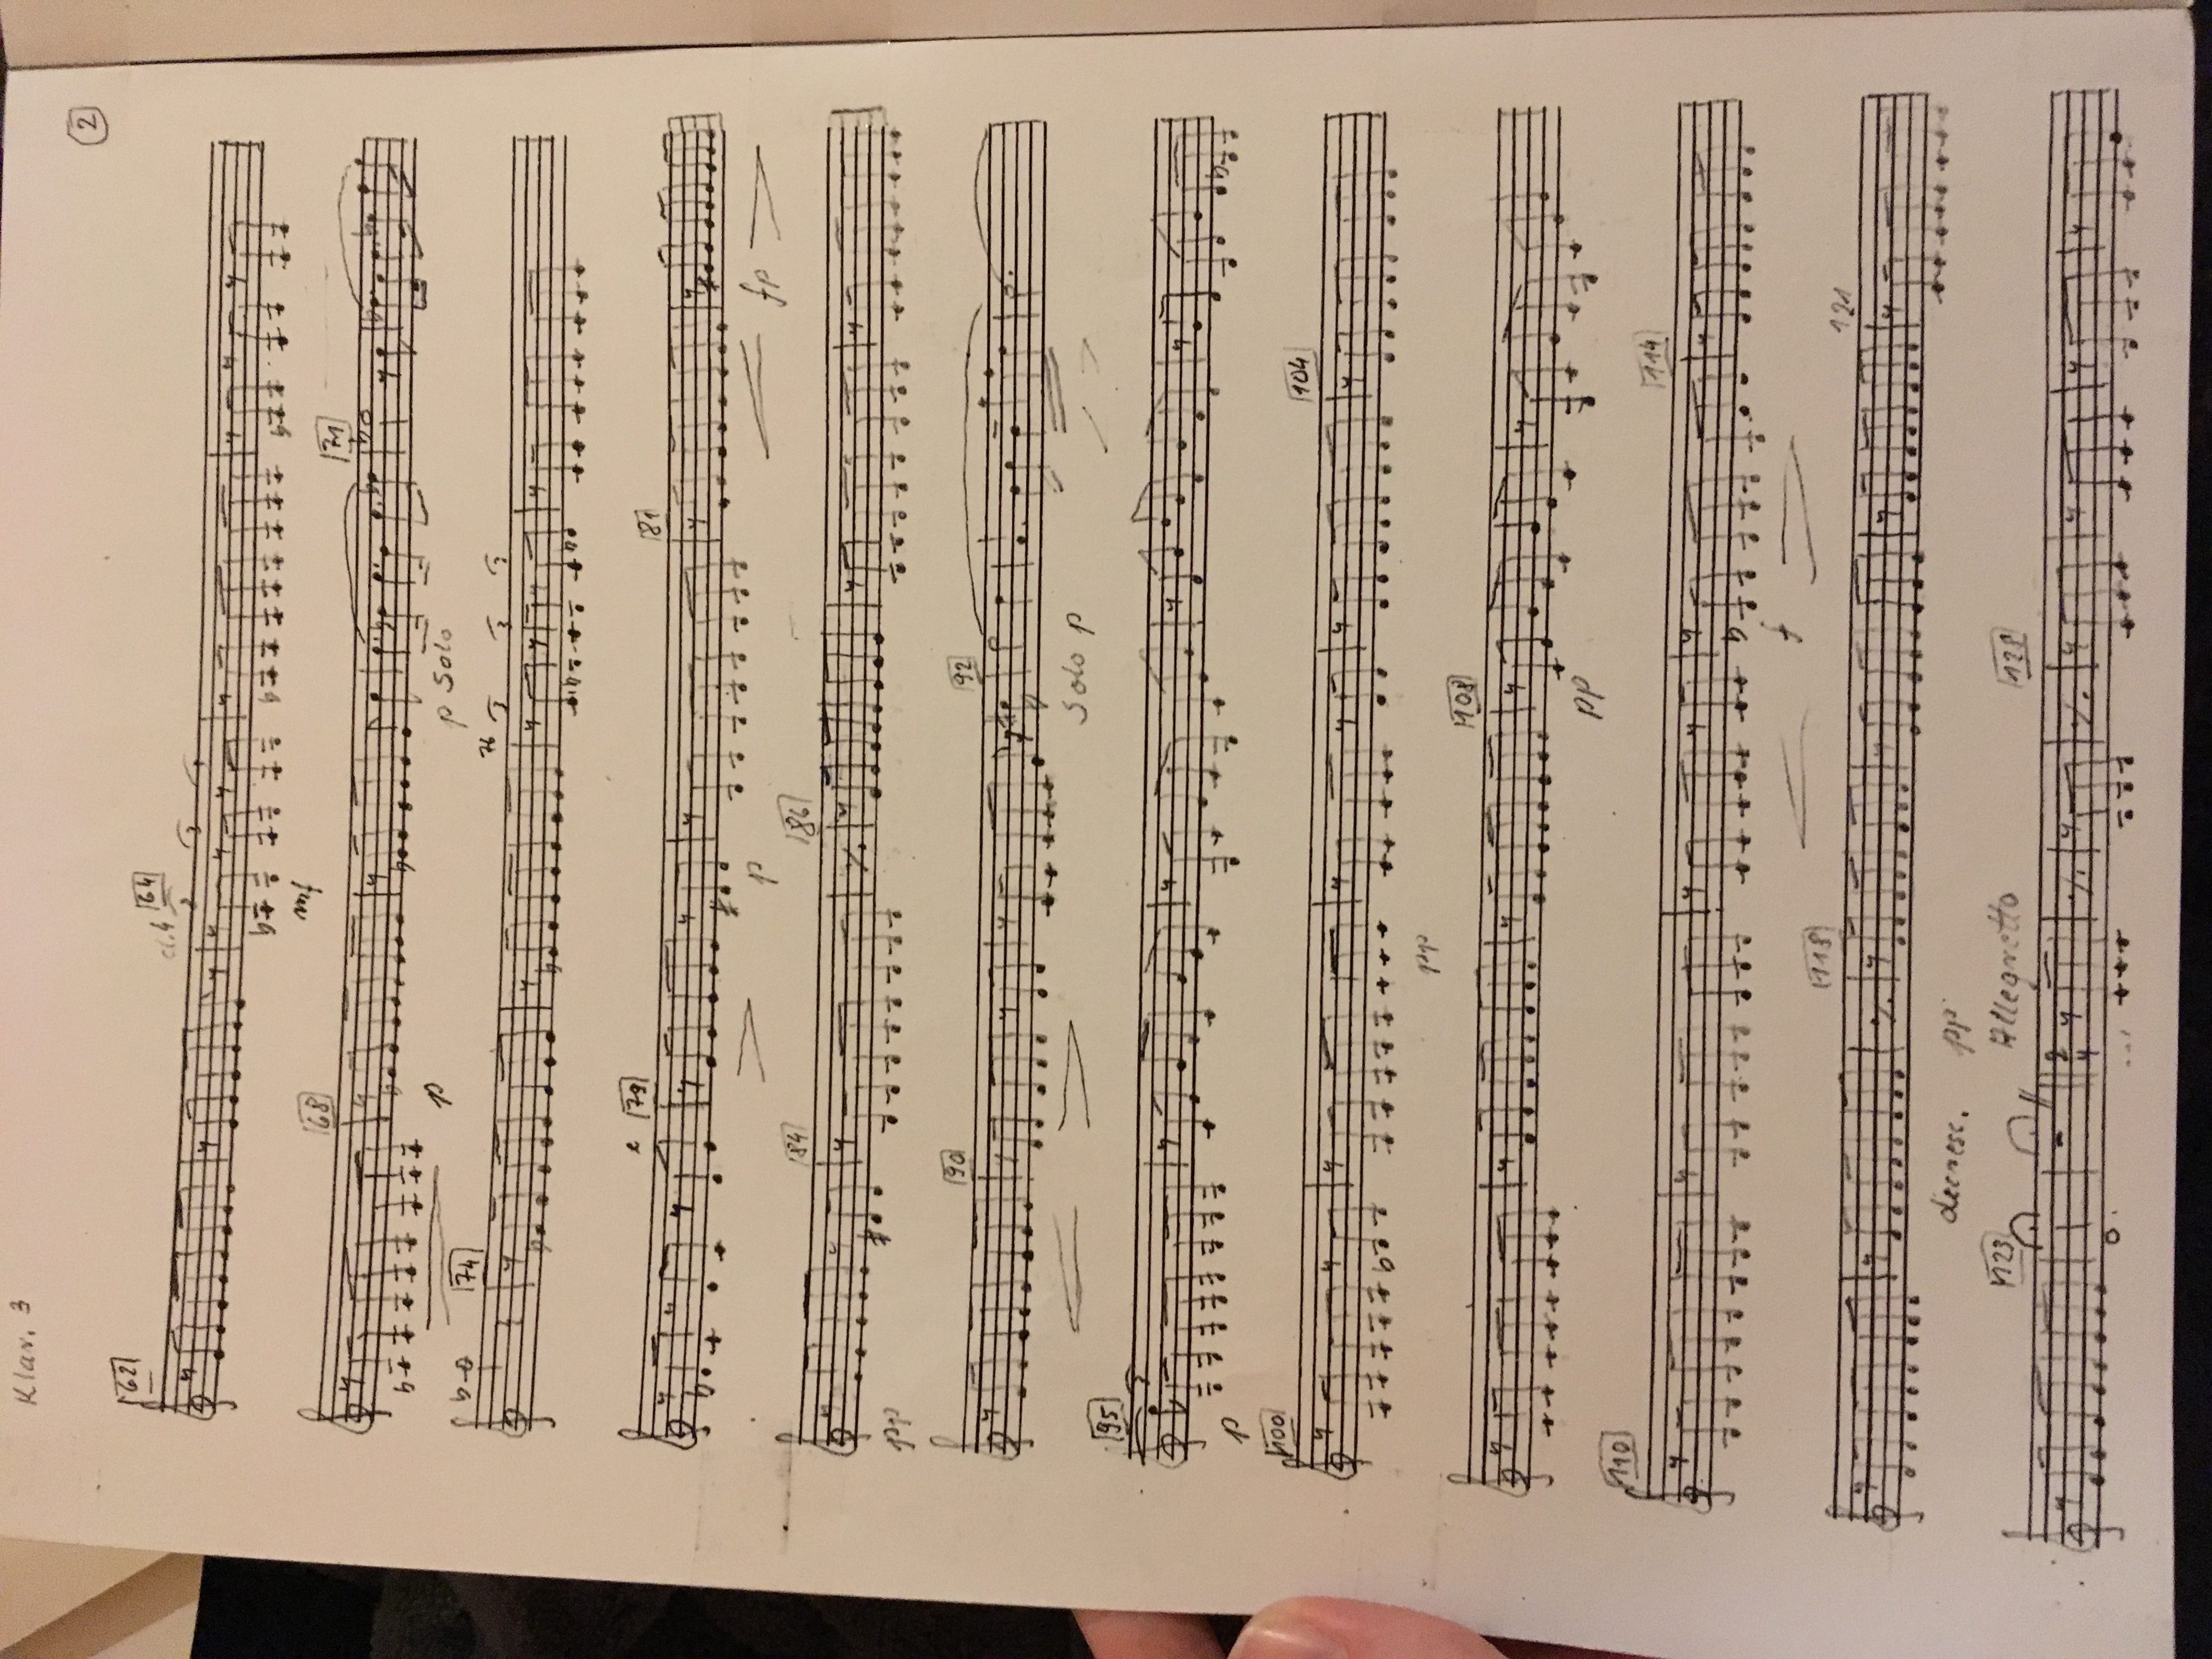 Klar. 3
2
62
cl.4 64
3 3
68 71
p p Solo
74 76 3 3 3
79 81
p fp
84 86
pp
90 92
Solo p
95
p
100 104
pp
108
pp
110 114
f
118 121
decresc. pp
123 Allegretto 128
2
4